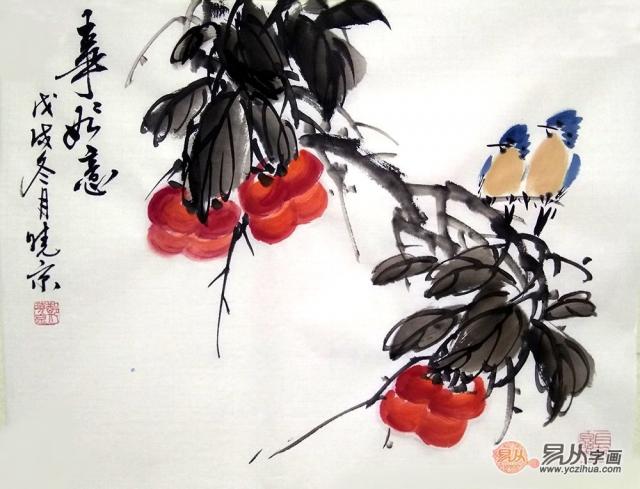 事如意
戊戌冬月曉京
易从
易从字画
www.yczihua.com